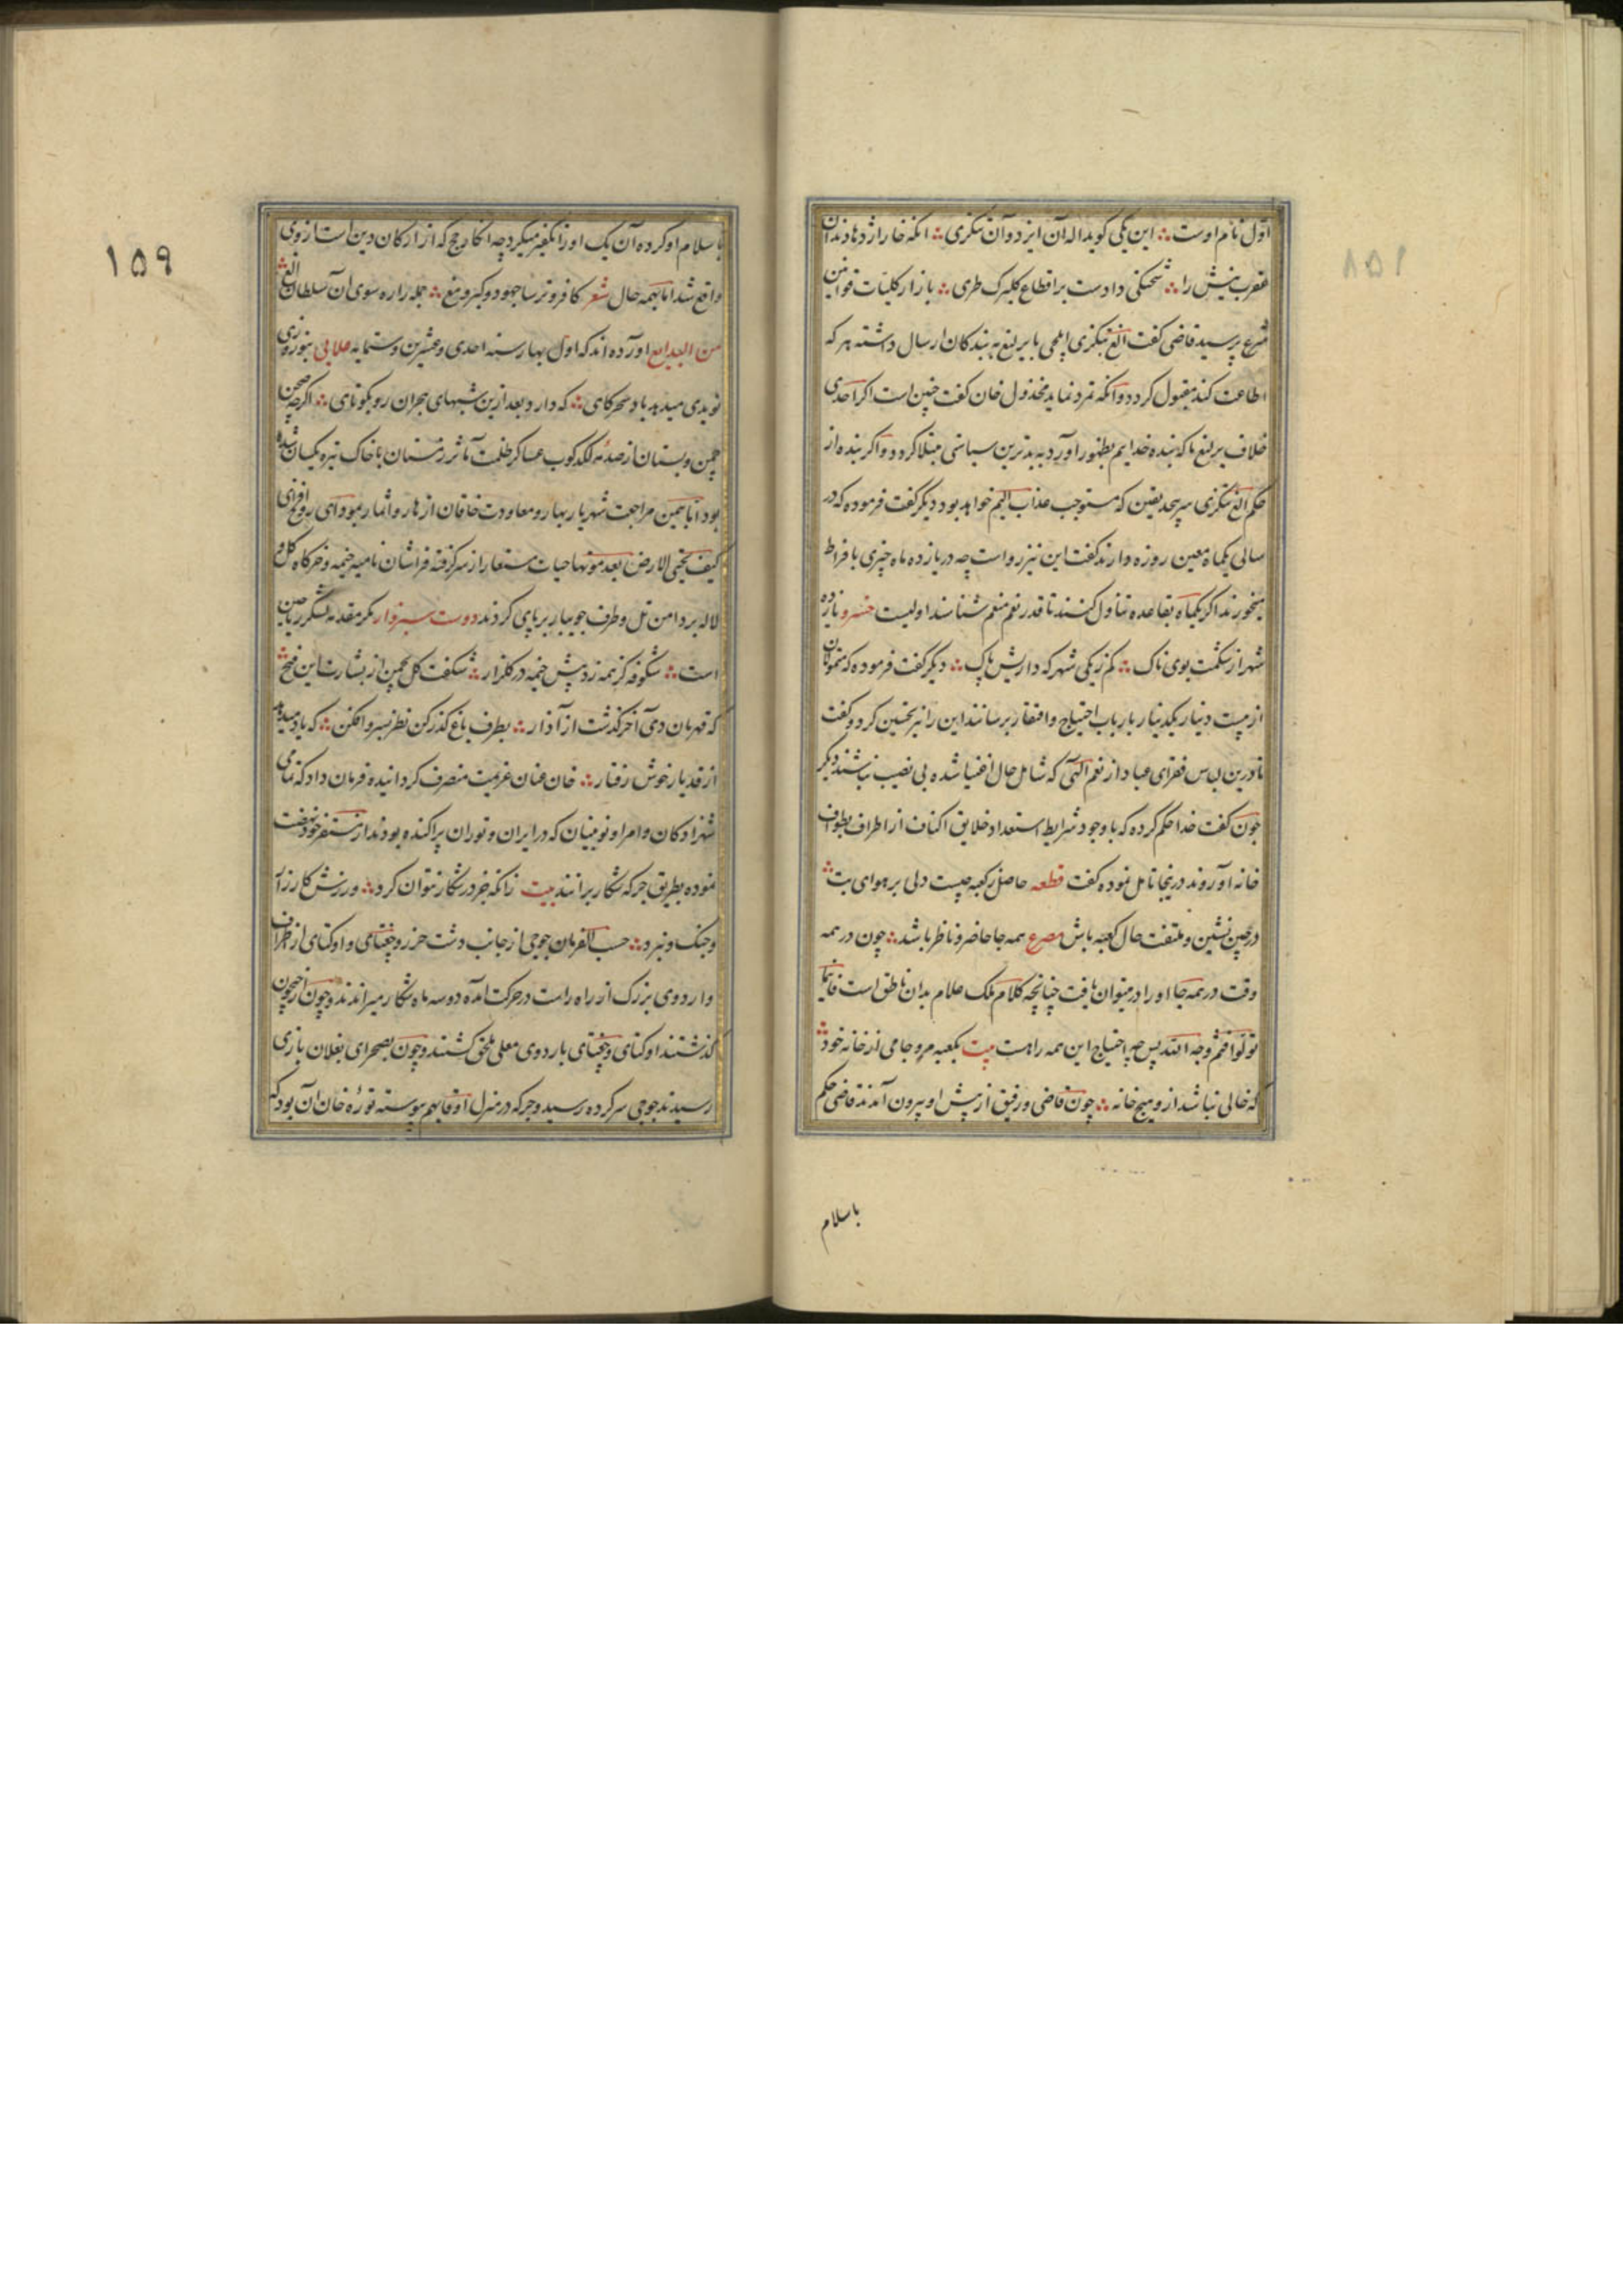 اول نام اوست ∴ این یکی کوید اله آن ایزد و آن تنکری ∴ انکه خار اژدها دندان
عقرب نیش را ∴ شحنکی دادست بر اقطاع کلبرک طری ∴ باز از کلیات قوانین
شرع پرسید قاضی کفت الغ تنکری ایلچی با یرلیغ به بندکان ارسال داشته هر که
اطاعت کند مقبول کردد و آنکه تمرد نماید مخذول خان کفت چنین است اکر احدی
خلاف یرلیغ ما که بنده خدایم بظهور آورد به بدترین سیاستی مبتلا کردد و اکر بنده از
حکم الغ تنکری سرپیچد یقین که مستوجب عذاب الیم خواهد بود دیکر کفت فرموده که در
سالی یکماه معین روزه دارند کفت این نیز رواست چه در یازده ماه چیزی بافراط
میخورند اکر یکماه بقاعده تناول کنند تا قدر نعم منعم شناسند اولیست خسرو یازده
شهر از شکمت بوی ناک ∴ کم ز یکی شهر که داریش پاک ∴ دیکر کفت فرموده که متمولان
از بیست دینار یکدینار بارباب احتیاج و افتقار برسانند این را نیز تحسین کرد و کفت
تا درین لباس فقرای عباد از نعم الهی که شامل حال اغنیا شده بی نصیب نباشند دیکر
چون کفت خدا حکم کرده که با وجود شرایط استعداد خلایق اکناف از اطراف بطواف
خانه او روند درینجا تامل نموده کفت قطعه حاصل ز کعبه چیست دلی بر هوای بت ∴
در چین نشین و ملتفت حال کعبه باش مصرع همه جا حاضر و ناظر باشد ∴ چون در همه
وقت در همه جا او را در میتوان یافت چنانچه کلام ملک علام بدان ناطق است فاینما
تولوا فثم وجه الله پس چه احتیاج این همه راهست بیت بکعبه مرو جامی از خانه خود ∴
که خالی نباشد ازو هیچ خانه ∴ چون قاضی و رفیق از پیش او بیرون آمدند قاضی حکم
باسلام
۱۵۹
باسلام او کرده آن یک او را تکفیر میکرد چه انکار حج که از ارکان دین است ازوی
واقع شد اما بهمه حال شعر کافر و ترسا جهود و کبر و مغ ∴ جمله را ره سوی آن سلطان الغ ∴
من البدایع آورده اند که اول بهار سنه احدی و عشرین و ستمایه بنوروزی
نویدی میدهد باد سحرکاهی ∴ که دارد بعد ازین شبهای هجران رو بکوتاهی ∴ اکرچه صحن
چمن و بستان از صدمه لکدکوب عساکر ظلمت مآثر زمستان با خاک تیره یکسان شده
بود اما بیمن مراجعت شهریار بهار و معاودت خاقان ازهار و اثمار بمودای روح افزای
کیف یحیی الارض بعد موتها حیات مستعار از سر کرفته فراشان نامیه خیمه و خرکاه کل و
لاله بر دامن تل و طرف جویبار بر پای کردند دوست سبزوار مکر مقدمه لشکر ریاحین
است ∴ شکوفه کز همه زد پیش خیمه در کلزار ∴ شکفت کل بچمن از بشارت این فتح ∴
که قهرمان دی آخر کذشت از آذار ∴ بطرف باغ کذر کن نظر بسرو افکن ∴ که یاد میدهد
از قد یار خوش رفتار ∴ خان عنان عزیمت منصرف کردانیده فرمان داد که تمامی
شهزادکان و امرا و نوینیان که در ایران و توران پراکنده بودند از مستقر خود نهضت
نموده بطریق جرکه شکار برانند بیت زانکه جز در شکار نتوان کرد ∴ ورزش کارزار
و جنک و نبرد ∴ حسب الفرمان جوجی از جانب دشت خزر و جغتای و اوکتای از طرف
و اردوی بزرک از راه راست در حرکت آمده دو سه ماه شکار میراندند و چون از جیحون
کذشتند اوکتای و جغتای باردوی معلی ملحق کشتند و چون بصحرای بغلان بازی
رسیدند جوجی سر کرده رسید و جرکه در منزل بهم پیوسته توره خان آن بود که